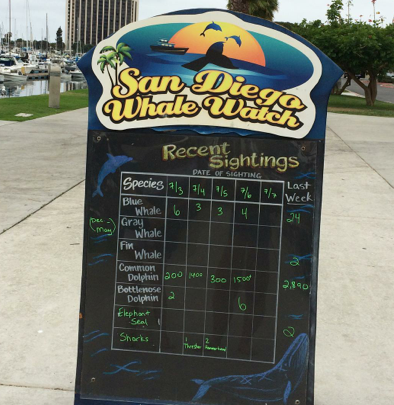 San Diego
Whale Watch
Recent
Sightings
DATE OF SIGHTING
Species 7/3 7/4 7/5 7/6 7/7 Last Week
Blue Whale 6 3 3 4 24
(Dec - May) Gray Whale
Fin Whale 2
Common Dolphin 200 1400 300 1500 2,890
Bottlenose Dolphin 2 6
Elephant Seal 1 2
Sharks 1 Thresher 2